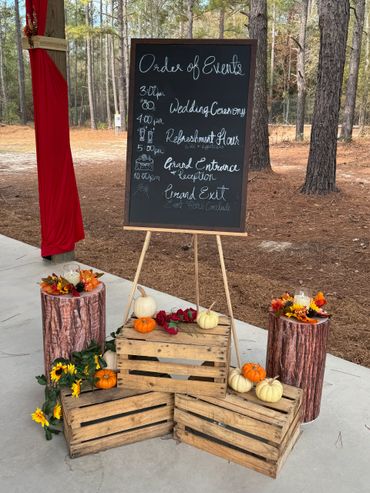 Order of Events
3:00pm
Wedding Ceremony
4:00pm
Refreshment Hour
5:00pm
Grand Entrance
Reception
10:00pm
Grand Exit